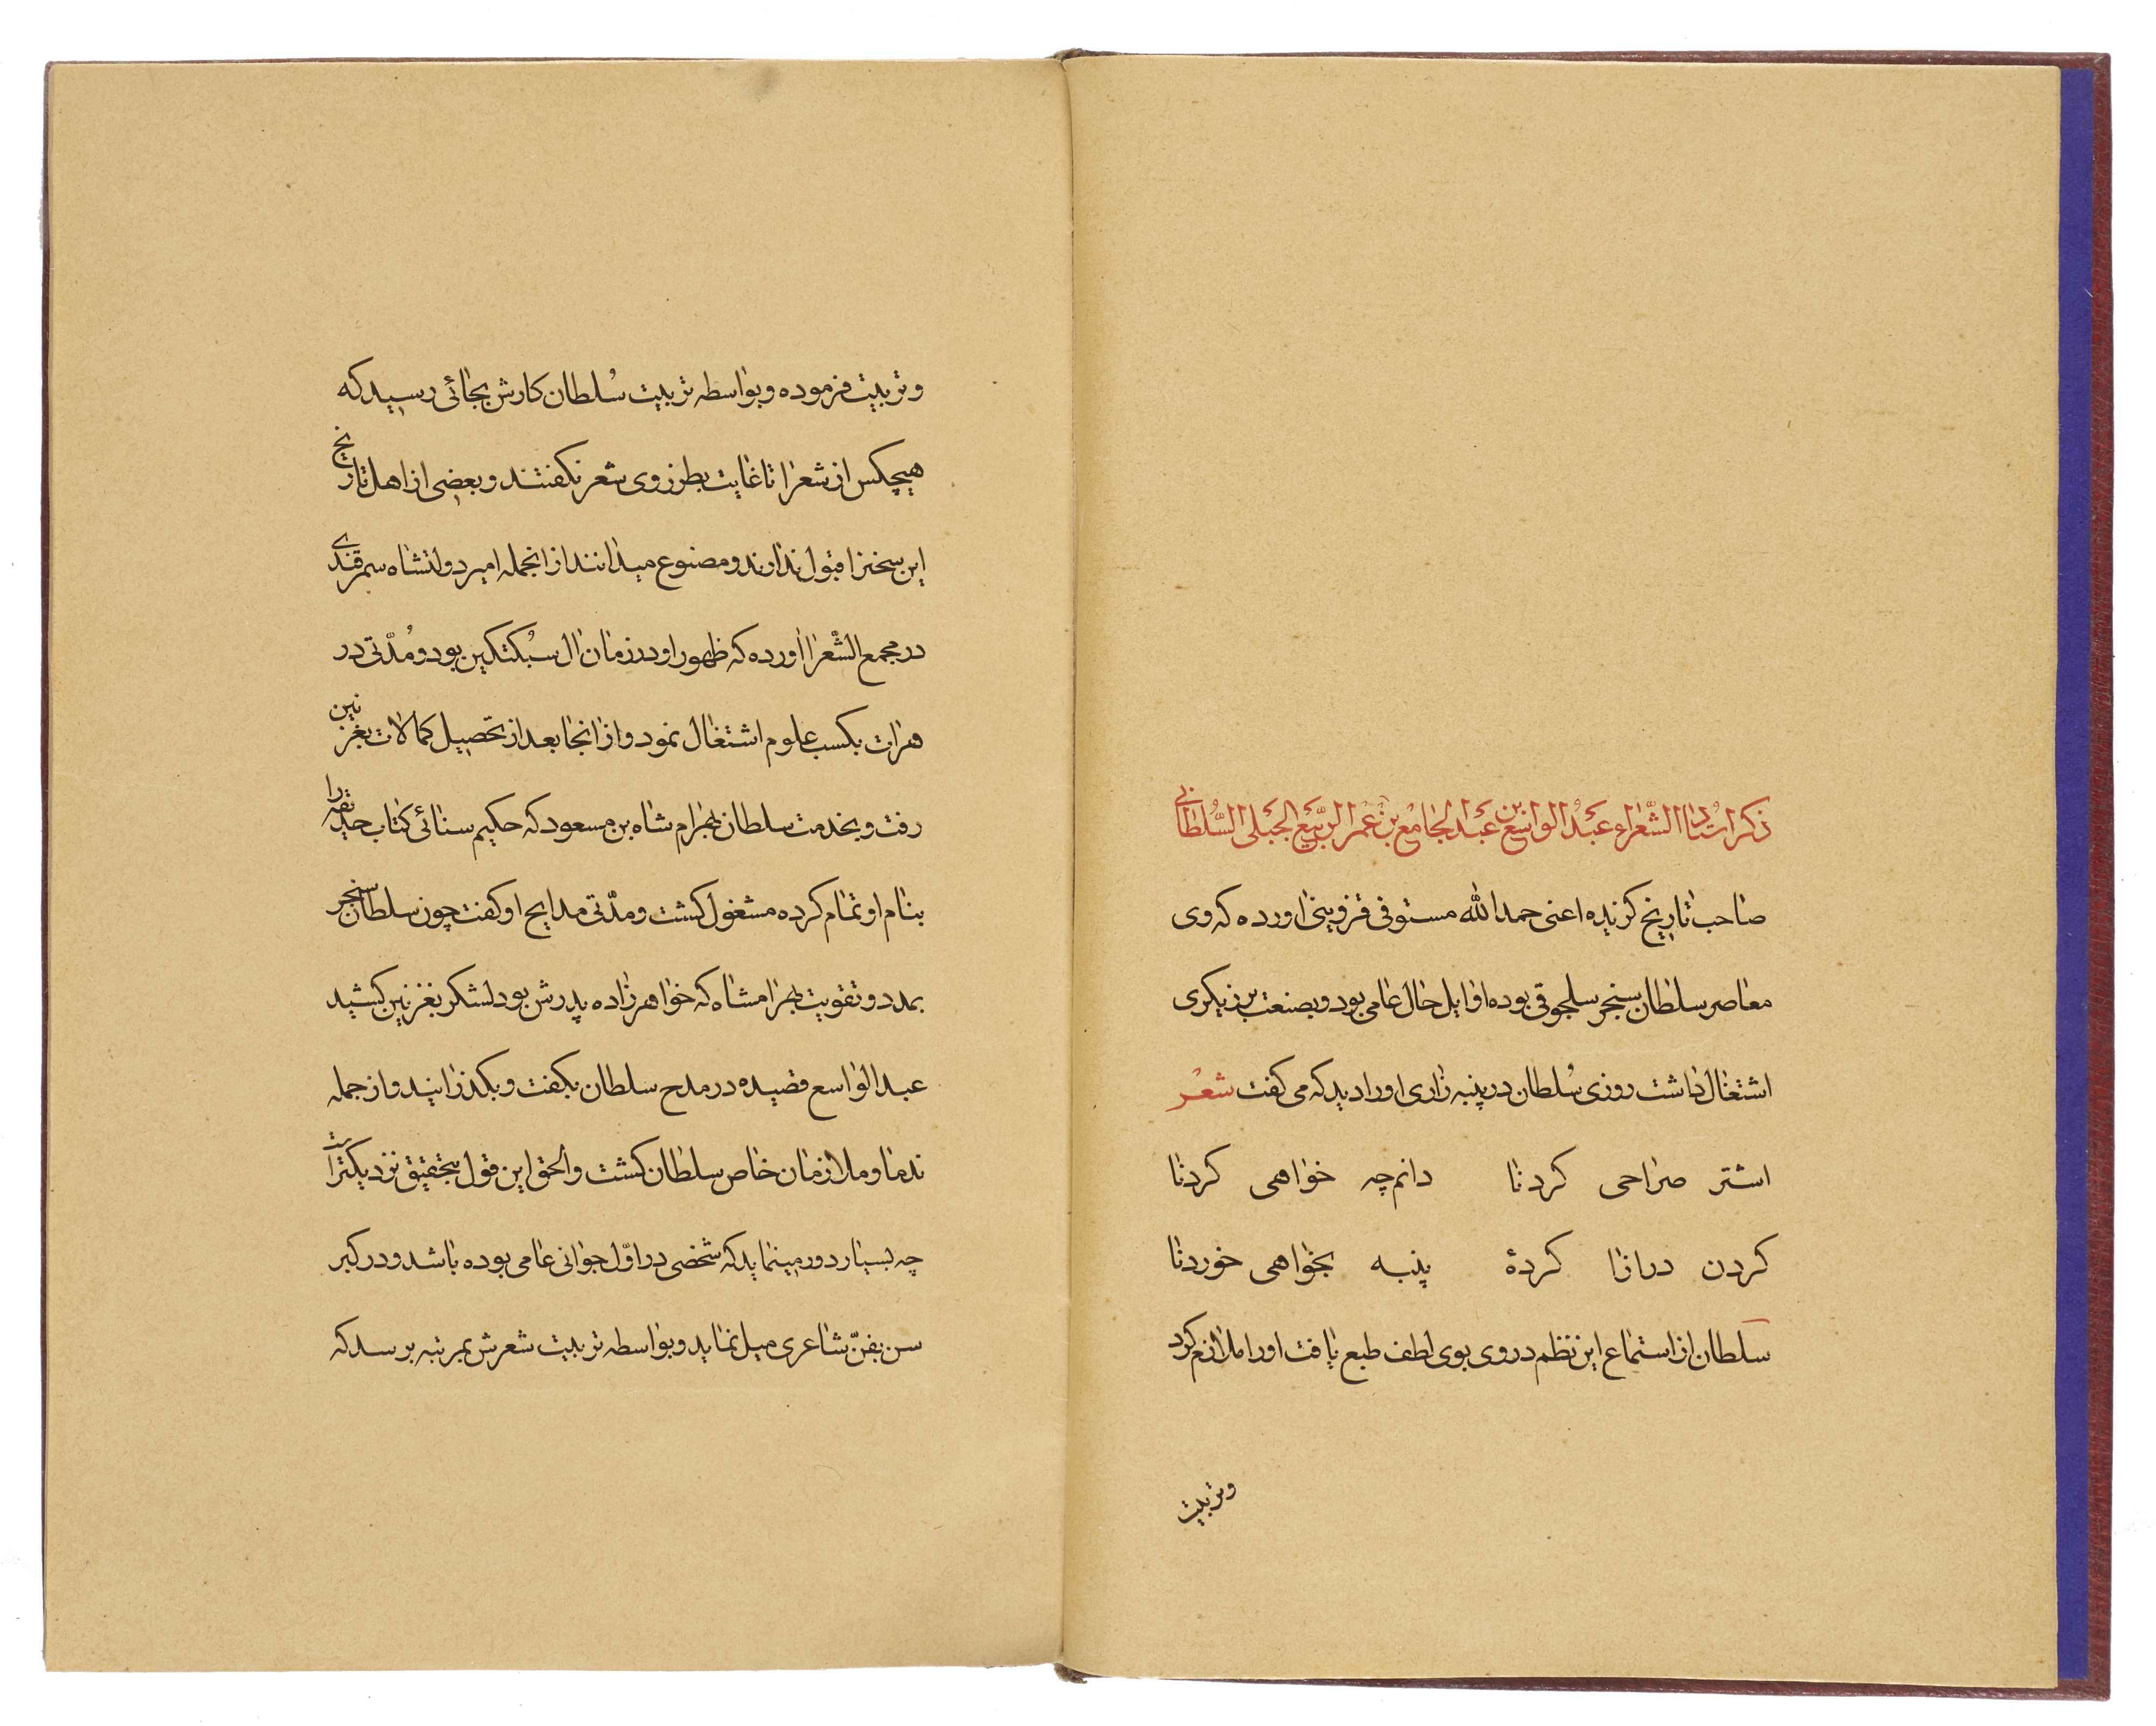 ذکر استاد الشّعراء عبدُ الواسع بن عبد الجامع بن عمر الرّبیع الجبلی السُّلطانی
صاحب تاریخ کزیده اعنی حمد الله مستوفی قزوینی اورده که وی
معاصر سلطان سنجر سلجوقی بوده اوایل حال عامی بود و بصنعت برزیکری
اشتغال داشت روزی سُلطان در پنبه زاری او را دید که می کفت شعر
اشتر صراحی کردنا دانم چه خواهی کردنا
کردن درازا کردۀ پنبه بخواهی خوردنا
سلطان از استماع این نظم در وی بوی لطف طبع یافت او را ملازم کرد
وتربیت
وتربیت فرموده و بواسطه تربیت سُلطان کارش بجائی رسید که
هیچکس از شعرا تا غایت بطرز وی شعر نکفتند و بعضی از اهل تاریخ
این سخنرا قبول ندارند و مصنوع میدانند از انجمله امیر دولتشاه سمرقندی
در مجمع الشُعرا اورده که ظهور او در زمان ال سبُکتکین بود و مُدّتی در
هرات بکسب علوم اشتغال نمود و از انجا بعد از تحصیل کمالات بغزنین
رفت و بخدمت سلطان بهرام شاه بن مسعود که حکیم سنائی کتاب حدیقه را
بنام او تمام کرده مشغول کشت و مدّتی مدایح او کفت چون سلطان سنجر
بمدد و تقویت بهرامشاه که خواهرزاده پدرش بود لشکر بغزنین کشید
عبد الواسع قصیده در مدح سلطان بکفت و بکذرانید و از جمله
ندما و ملازمان خاص سلطان کشت و الحق این قول بتحقیق نزدیکتر است
چه بسیار دور مینماید که شخصی در اوّل جوانی عامی بوده باشد و در کبر
سن بفنّ شاعری میل نماید و بواسطه تربیت شعرش بمرتبه برسد که